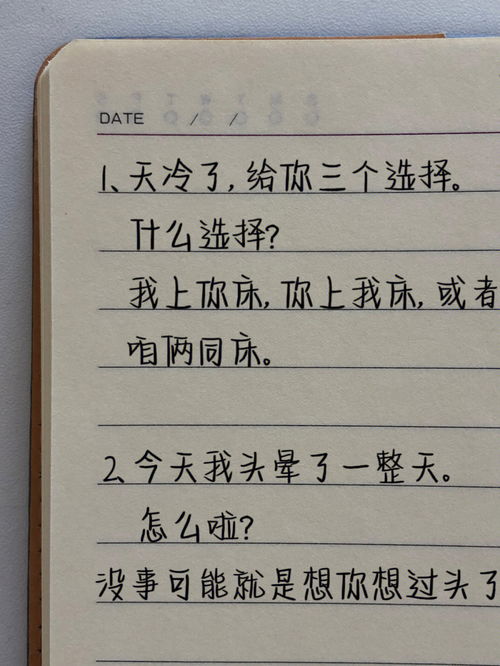 DATE / /
1、天冷了,给你三个选择。
什么选择?
我上你床,你上我床,或者
咱俩同床。
2、今天我头晕了一整天。
怎么啦?
没事可能就是想你想过头了